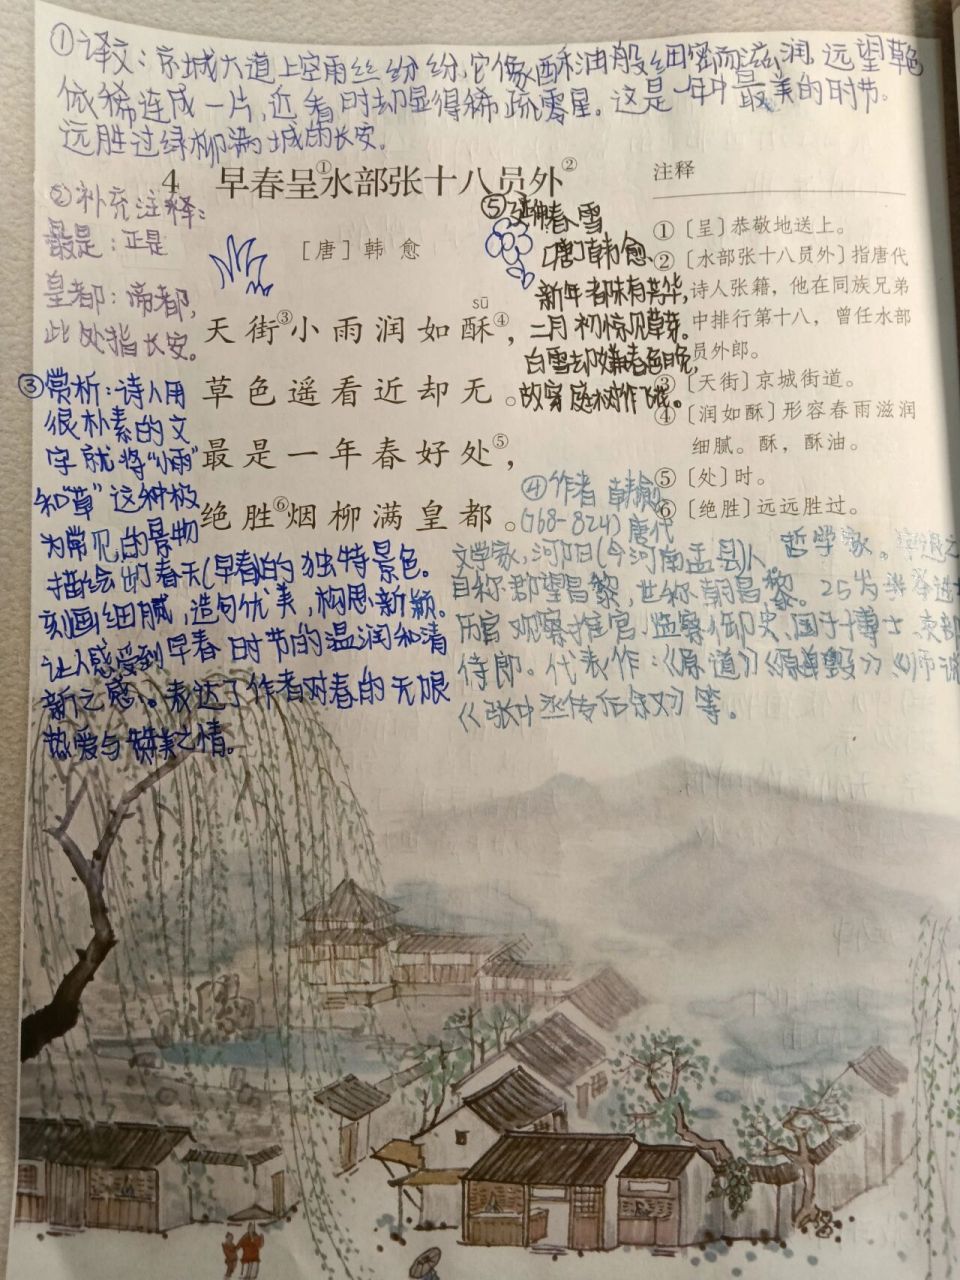 ①译文：京城大道上空雨丝纷纷,它像酥油般细密而滋润,远望草色
依稀连成一片,近看时却显得稀疏零星。这是一年中最美的时节。
远胜过绿柳满城的长安。
4 早春呈①水部张十八员外②
[唐]韩愈
sū
天街③小雨润如酥④，
草色遥看近却无。
最是一年春好处⑤，
绝胜⑥烟柳满皇都。
注释
①〔呈〕恭敬地送上。
②〔水部张十八员外〕指唐代
诗人张籍，他在同族兄弟
中排行第十八，曾任水部
员外郎。
③〔天街〕京城街道。
④〔润如酥〕形容春雨滋润
细腻。酥，酥油。
⑤〔处〕时。
⑥〔绝胜〕远远胜过。
②补充注释：
最是：正是
皇都：帝都，
此处指长安。
③赏析：诗人用
很朴素的文
字就将“小雨”
和“草”这种极
为常见的景物
描绘出的春天(早春)的独特景色。
刻画细腻，造句优美，构思新颖。
让人感受到早春时节的温润和清
新之感。表达了作者对春的无限
热爱与赞美之情。
⑤ 春雪
[唐]韩愈
新年都未有芳华,
二月初惊见草芽。
白雪却嫌春色晚,
故穿庭树作飞花。
④作者 韩愈
(768-824)唐代
文学家,河阳(今河南孟县)人 哲学家。
自称郡望昌黎，世称韩昌黎。25岁
历官观察推官、监察御史、国子博士、
侍郎。代表作：《原道》《原毁》《师说
《张中丞传后叙》等。